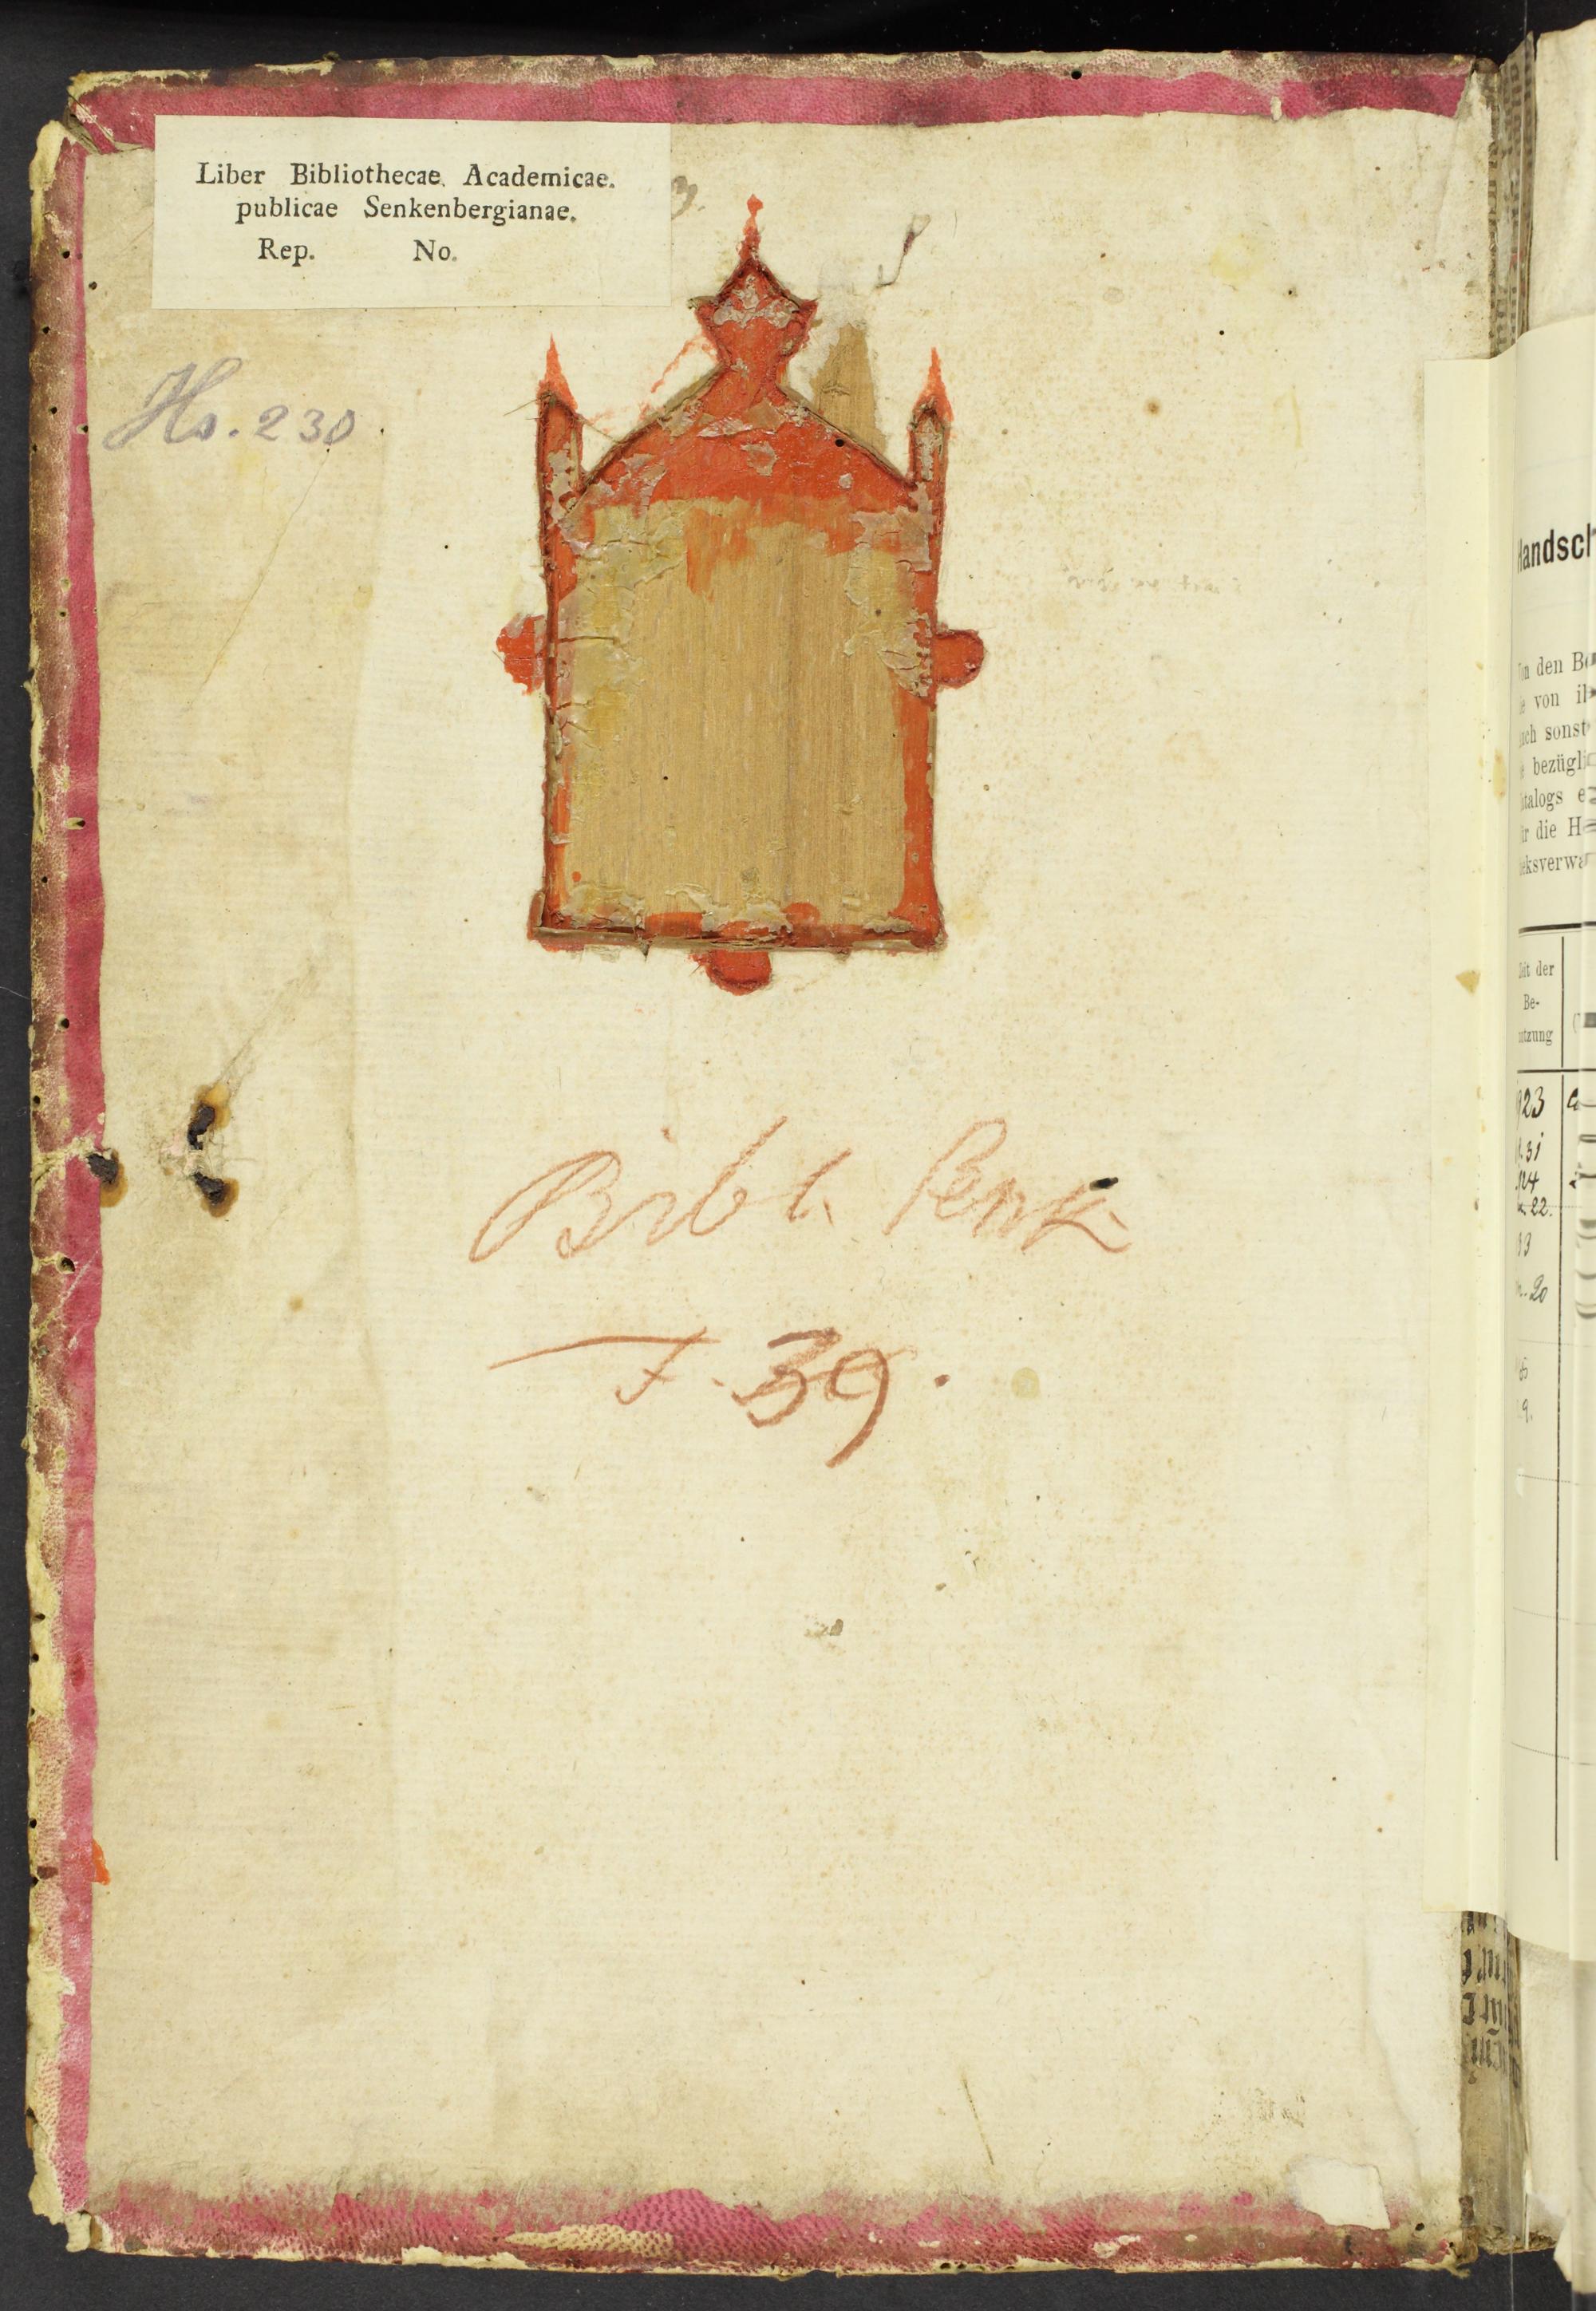 Liber Bibliothecae Academicae.
publicae Senkenbergianae.
Rep. No.
3.
Hs. 230
Bibl. Senk.
F. 39.
Handsch
den Be
von
sonst
bezügli
talogs
die H
eksverwa
der
Be-
tzung
923
31
24
22.
33
20